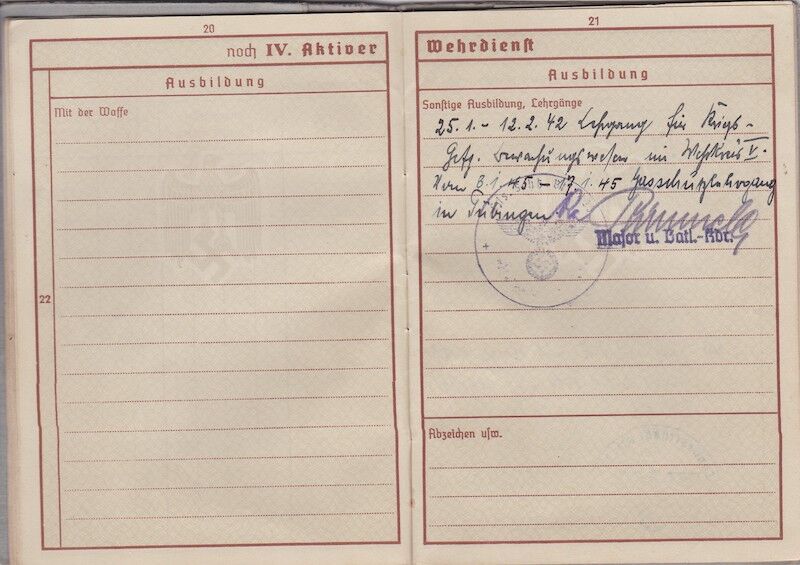 20
noch IV. Aktiver
Ausbildung
Mit der Waffe
22
21
Wehrdienst
Ausbildung
Sonstige Ausbildung, Lehrgänge
25.1. - 12.2.42 Lehrgang für Kriegs-
Gefg. bewachungswesen im Wehrkreis V.
Vom 8.1.45 - 17.1.45 Gasschutzlehrgang
in Tübingen
Major u. Batl.-Kdr.
Abzeichen usw.